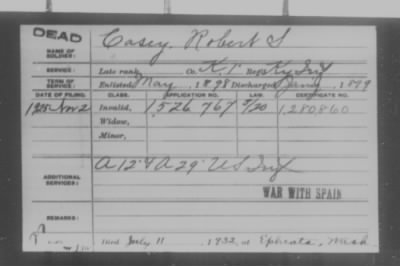 DEAD
NAME OF SOLDIER: Casey, Robert S
SERVICE: Late rank, Co. K, 1 Reg't Ky Inf
TERM OF SERVICE: Enlisted May, 1898 Discharged Jany, 1899
DATE OF FILING. CLASS. APPLICATION NO. LAW. CERTIFICATE NO.
1925 Nov 2 Invalid, 1526767 5/20 1,280,860
Widow,
Minor,
A 12 & A 29 US Inf
ADDITIONAL SERVICES:
WAR WITH SPAIN
REMARKS:
Died July 11, 1932, at Ephrata, Wash.